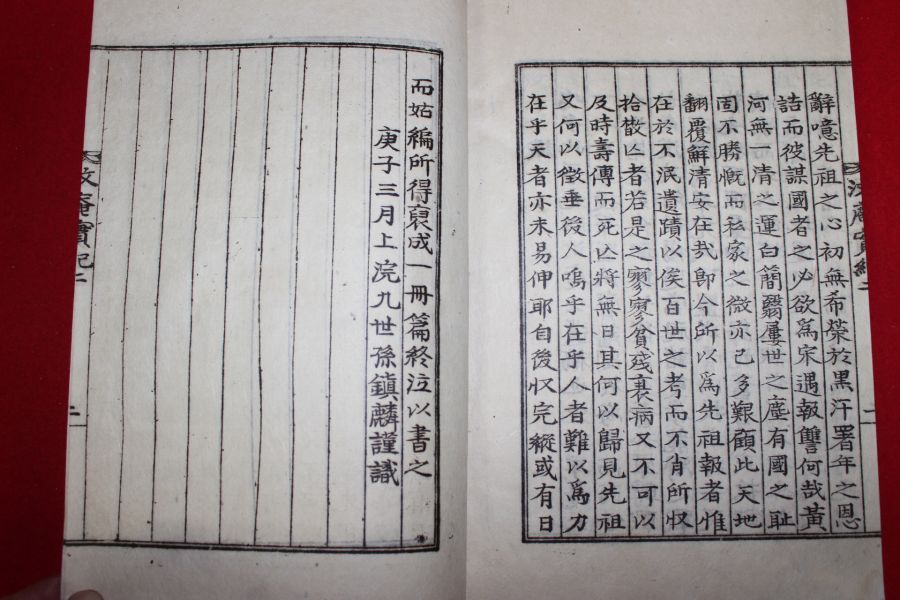 辭噫先祖之心初無希榮於黑汗署年之恩
誥而彼謀國者之必欲爲宋遇報讐何哉黃
河無一清之運白簡翳屢世之塵有國之耻
固不勝慨而私家之微亦已多艱顧此天地
翻覆鮮淸安在㢤卽今所以爲先祖報者惟
在於不泯遺蹟以俟百世之考而不肖所収
拾散亡者若是之寥寥貧殘衰病又不可以
及時壽傳而死亡將無日其何以歸見先祖
又何以徵垂後人嗚乎在乎人者難以爲力
在乎天者亦未易伸耶自後収完縱或有日
而姑編所得裒成一冊篇終泣以書之
庚子三月上浣九世孫鎭麟謹識
實紀二
二